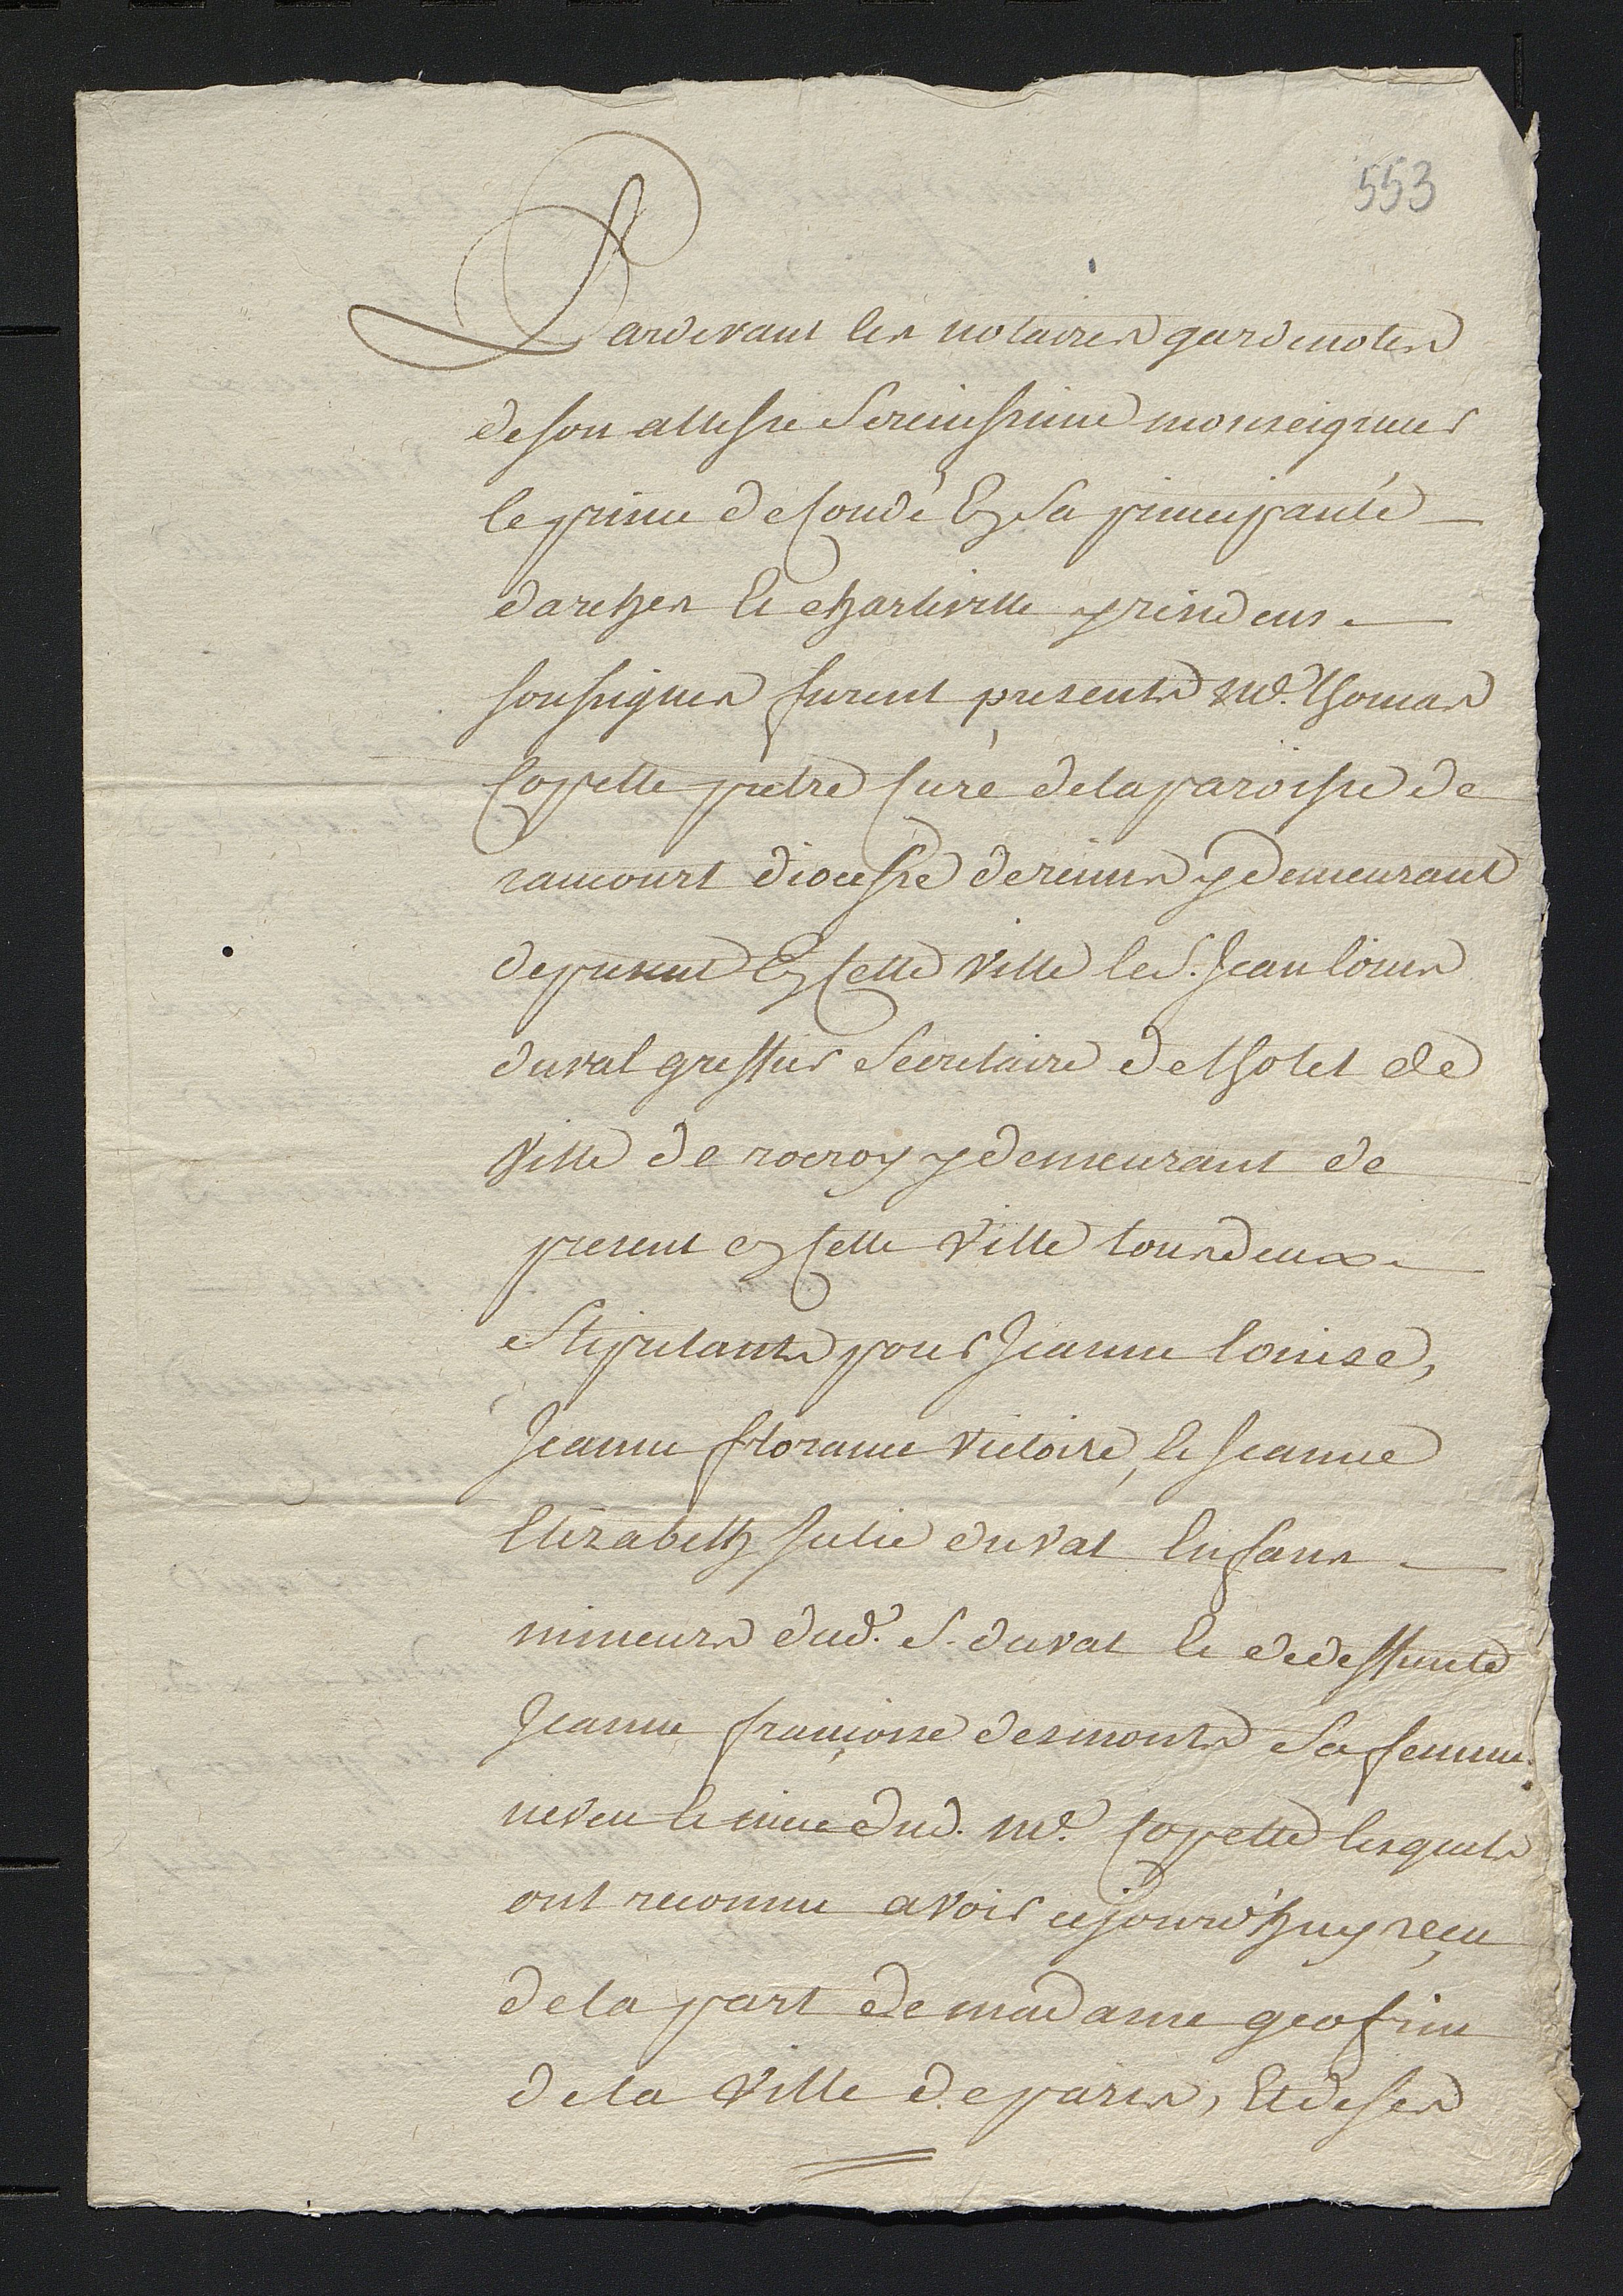 553
Pardevant les notaires gardenotes
de son altesse Serenissime monseigneur
le prince de Condé En Sa principauté
d'arches et charleville
soussignes furent presents Me. Thomas
Copette pretre Curé de la paroisse de
raucourt diocesse de reims y demeurant
de present En Cette Ville le S. Jean louis
duval greffier Secretaire de l'hotel de
Ville de rocroy y demeurant de
present en Cette Ville tous deux
Stipulants pour Jeanne louise,
Jeanne florance Victoire, et Jeanne
Elizabeth Julie duval Enfans
mineurs dud. S. duval et de deffunte
Jeanne françoise desmonts Sa femme
neveu et niece dud. Me. Copette lesquels
ont reconnu avoir cejourd'huy reçu
de la part de madame geofrin
de la Ville de paris, Et de ses